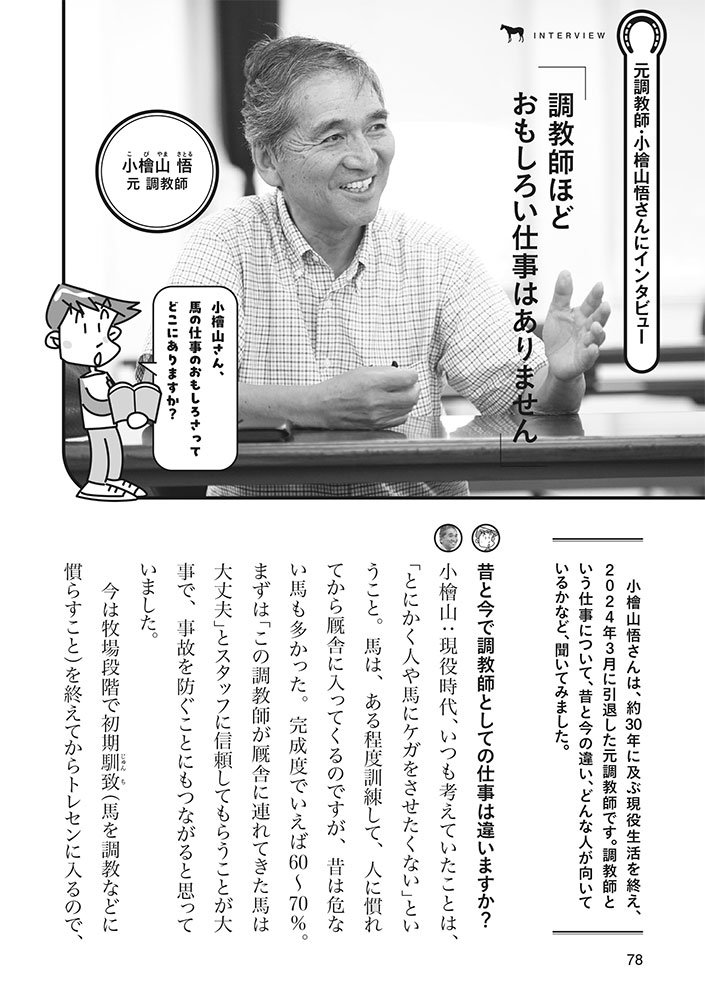 元調教師・小檜山悟さんにインタビュー
INTERVIEW
「調教師ほど
おもしろい仕事はありません」
こびやま さとる
小檜山 悟
元 調教師
小檜山さん、
馬の仕事のおもしろさって
どこにありますか？
小檜山悟さんは、約30年に及ぶ現役生活を終え、
2024年3月に引退した元調教師です。調教師と
いう仕事について、昔と今の違い、どんな人が向いて
いるかなど、聞いてみました。
昔と今で調教師としての仕事は違いますか？
小檜山：現役時代、いつも考えていたことは、
「とにかく人や馬にケガをさせたくない」とい
うこと。馬は、ある程度訓練して、人に慣れ
てから厩舎に入ってくるのですが、昔は危な
い馬も多かった。完成度でいえば60～70％。
まずは「この調教師が厩舎に連れてきた馬は
大丈夫」とスタッフに信頼してもらうことが大
事で、事故を防ぐことにもつながると思って
いました。
今は牧場段階で初期馴致（馬を調教などに
じゅんち
慣らすこと）を終えてからトレセンに入るので、
78